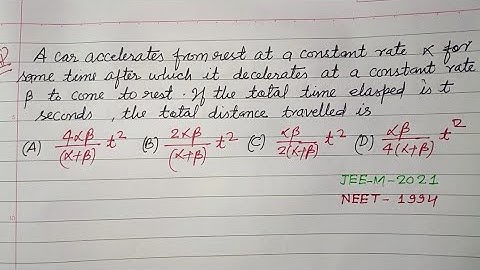 A car accelerates from rest at a constant rate α for
some time after which it decelerates at a constant rate
β to come to rest. If the total time elasped is t
seconds, the total distance travelled is
(A) 4αβ/(α+β) t² (B) 2αβ/(α+β) t² (C) αβ/2(α+β) t² (D) αβ/4(α+β) t²
JEE-M-2021
NEET-1994